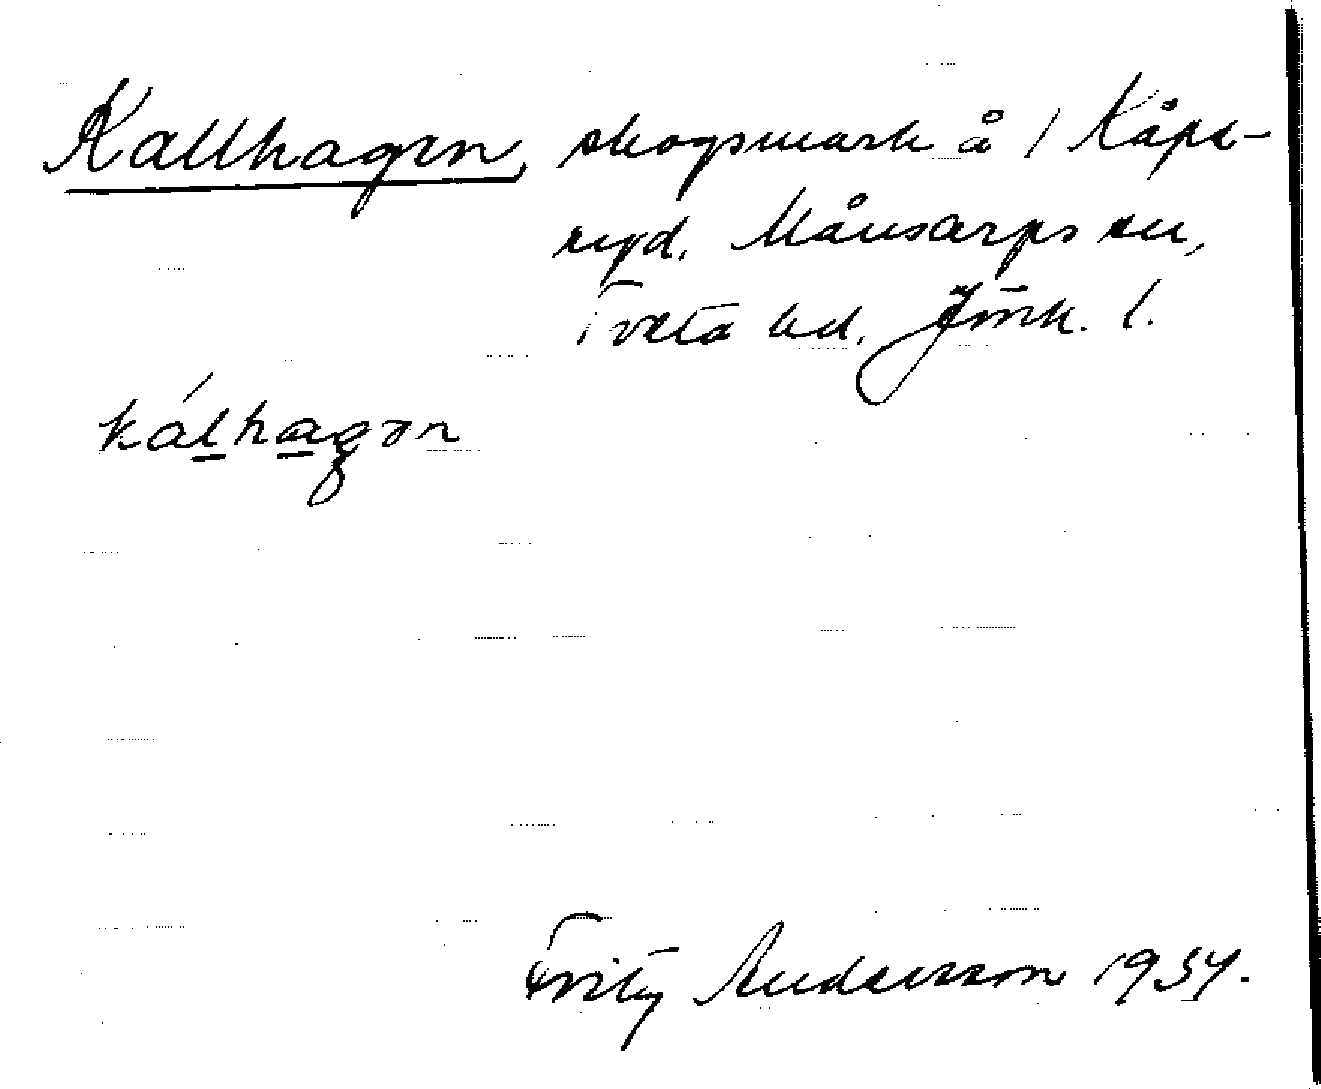 Kallhagen, skogsmark å / Kåpe-
ryd. Månsarps sn,
Tveta hd. Jönk. l.
kálhagən
Fritz Andersson 1934.